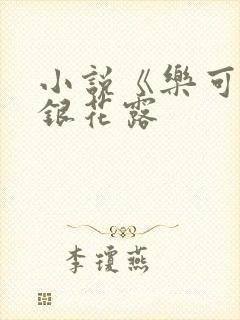 小說《樂可
銀花露
李瓊燕